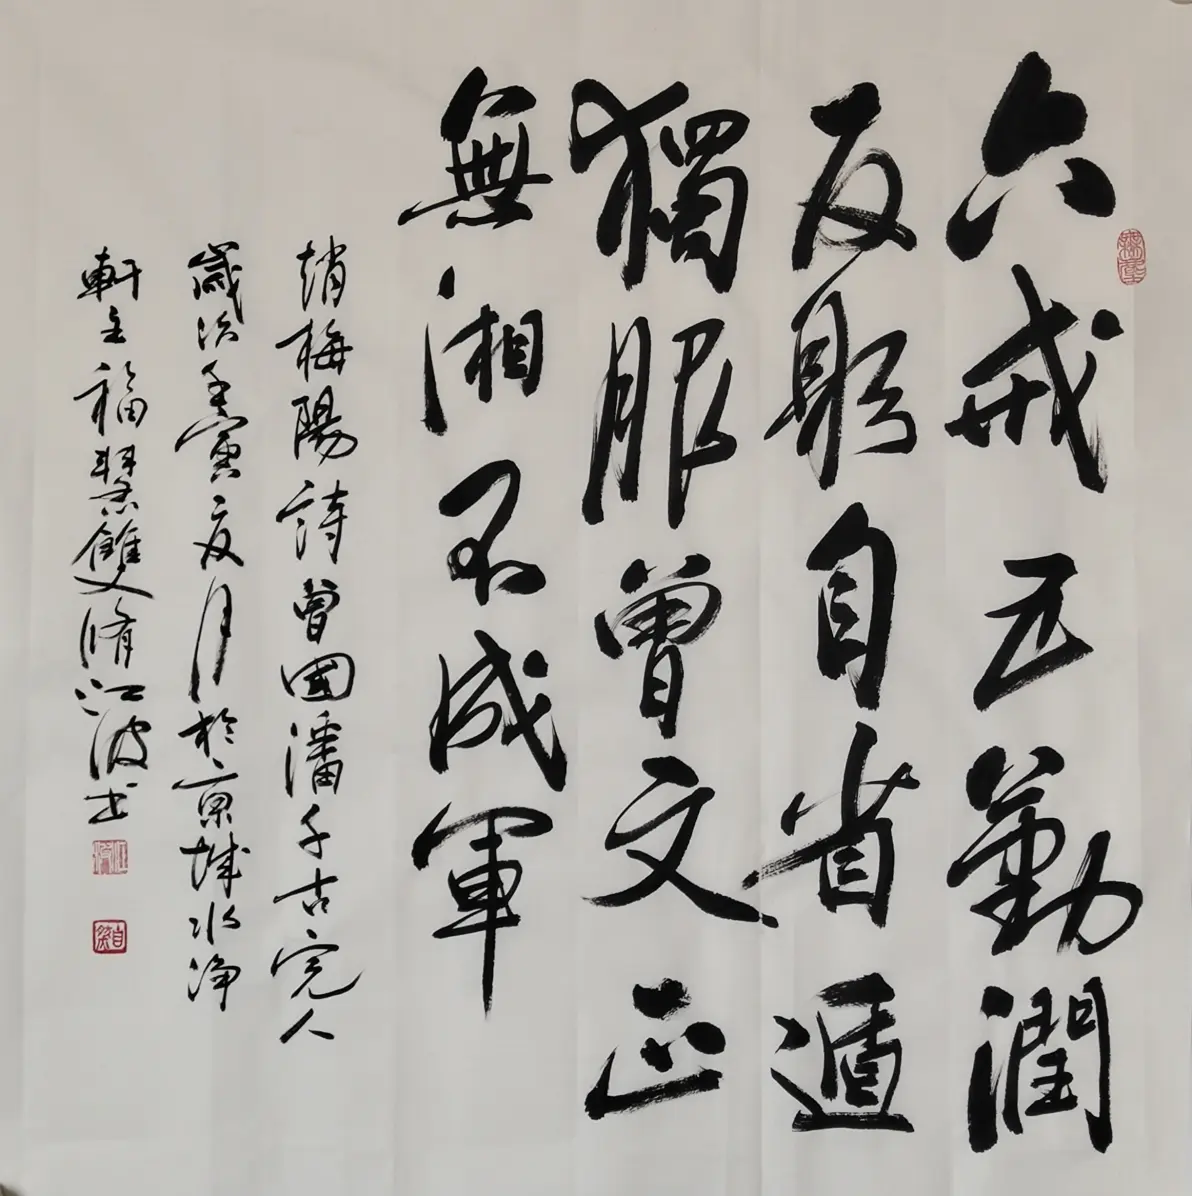 六戒五勤潤
反躬自省遁
獨服曾文正
無湘不成軍
趙梅陽詩曾國潘千古完人
歲次壬寅夏月於京城水淨
軒主福慧雙脩江波书